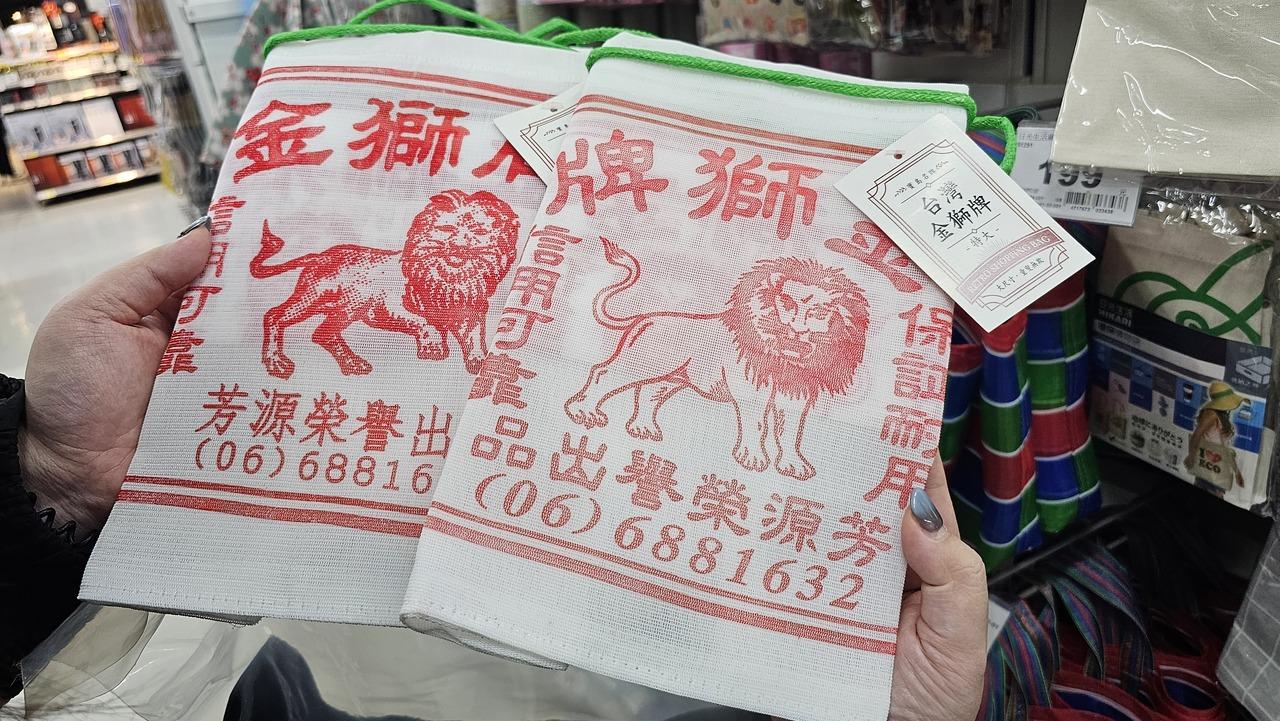 金獅
信用可靠
芳源榮譽出
(06)68816
牌獅金
信用可靠
保証耐用
品出譽榮源芳
(06)6881632
台灣
金獅牌
-特大-
RETRO SHOPPING BAG
大尺寸·童叟無欺
199
HIKARI
I♥ECO